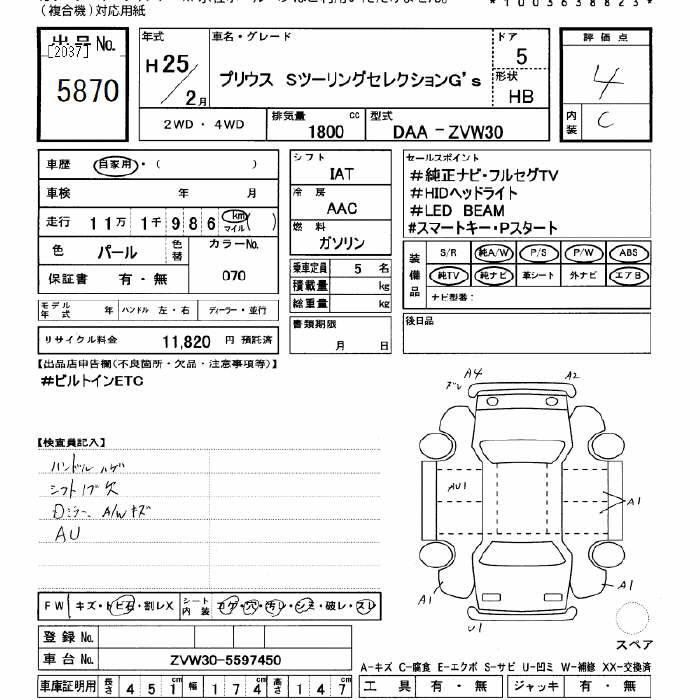 （複合機）対応用紙
*1003638823*
出品No.
[2037]
5870
年式
H25/2月
車名・グレード
プリウス SツーリングセレクションG's
ドア
5
形状
HB
2WD・4WD
排気量 cc
1800
型式
DAA-ZVW30
評価点
4
内装
C
車歴 自家用・（ ）
車検 年 月
走行 11万 1千 986 km マイル ( )
色 パール
色替
カラーNo.
070
保証書 有・無
モデル年式 年
ハンドル 左・右
ディーラー・並行
リサイクル料金 11,820 円 預託済
シフト
IAT
冷房
AAC
燃料
ガソリン
乗車定員 5 名
積載量 kg
総重量 kg
書類期限
月 日
セールスポイント
#純正ナビ・フルセグTV
#HIDヘッドライト
#LED BEAM
#スマートキー・Pスタート
装備品
S/R 純A/W P/S P/W ABS
純TV 純ナビ 革シート 外ナビ エアB
ナビ型番：
後日品
【出品店申告欄(不良箇所・欠品・注意事項等)】
#ビルトインETC
【検査員記入】
ハンドル ハゲ
シフトノブ欠
Dミラー、A/Wキズ
AU
ズレ
A4
A2
AU1
A1
A1
A1
U1
スペア
FW キズ・トビ石・割レX
シート内装 コゲ・穴・汚レ・シミ・破レ・スレ
登録No.
車台No. ZVW30-5597450
車庫証明用 長さ 451cm 幅 174cm 高さ 147cm
A-キズ C-腐食 E-エクボ S-サビ U-凹ミ W-補修 XX-交換済
工具 有・無 ジャッキ 有・無